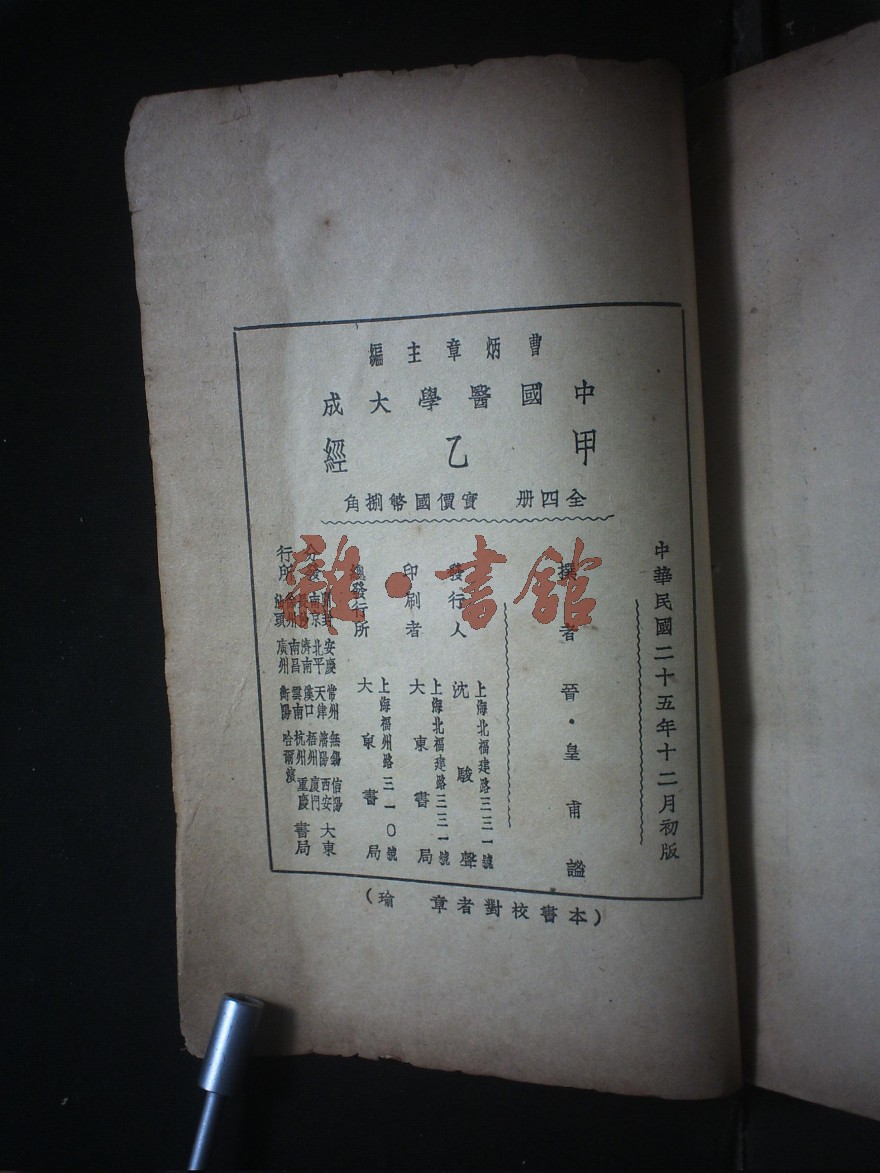 曹炳章主編
中國醫學大成
甲乙經
全四册 實價國幣捌角
中華民國二十五年十二月初版
撰者 晉·皇甫謐
發行人 沈駿聲
上海北福建路三三一號
印刷者 大東書局
上海北福建路三三一號
總發行所 大東書局
上海福州路三一〇號
分發行所
開封 安慶 常州 無錫 信陽
南京 北平 天津 瀋陽 西安
長沙 濟南 漢口 梧州 廈門
徐州 南昌 雲南 杭州 重慶
汕頭 廣州 衡陽 哈爾濱
大東書局
(本書校對者章瑜)
雜·書館